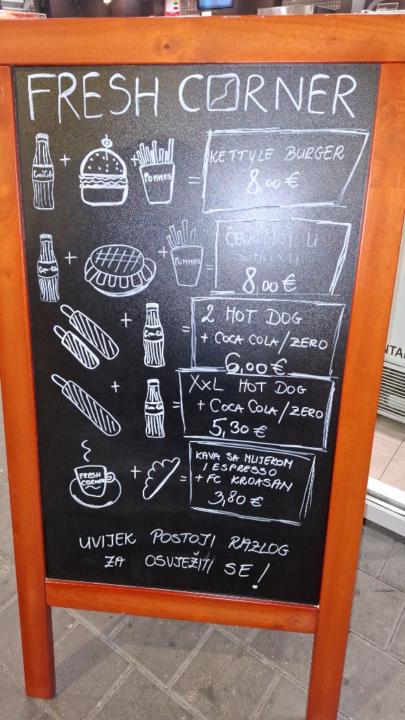 FRESH CORNER
Coca-Cola + + POMMES = KETTYLE BURGER
8,00 €
Coca-Cola + + POMMES = ĆEVAPČIĆI U
SOMUNU
8,00 €
+ = 2 HOT DOG
+ COCA COLA/ZERO
6,00 €
+ = XXL HOT DOG
+ COCA COLA/ZERO
5,30 €
FRESH CORNER + = KAVA SA MLIJEKOM
/ ESPRESSO
+ FC KROASAN
3,80 €
UVIJEK POSTOJI RAZLOG
ZA OSVJEŽITI SE!